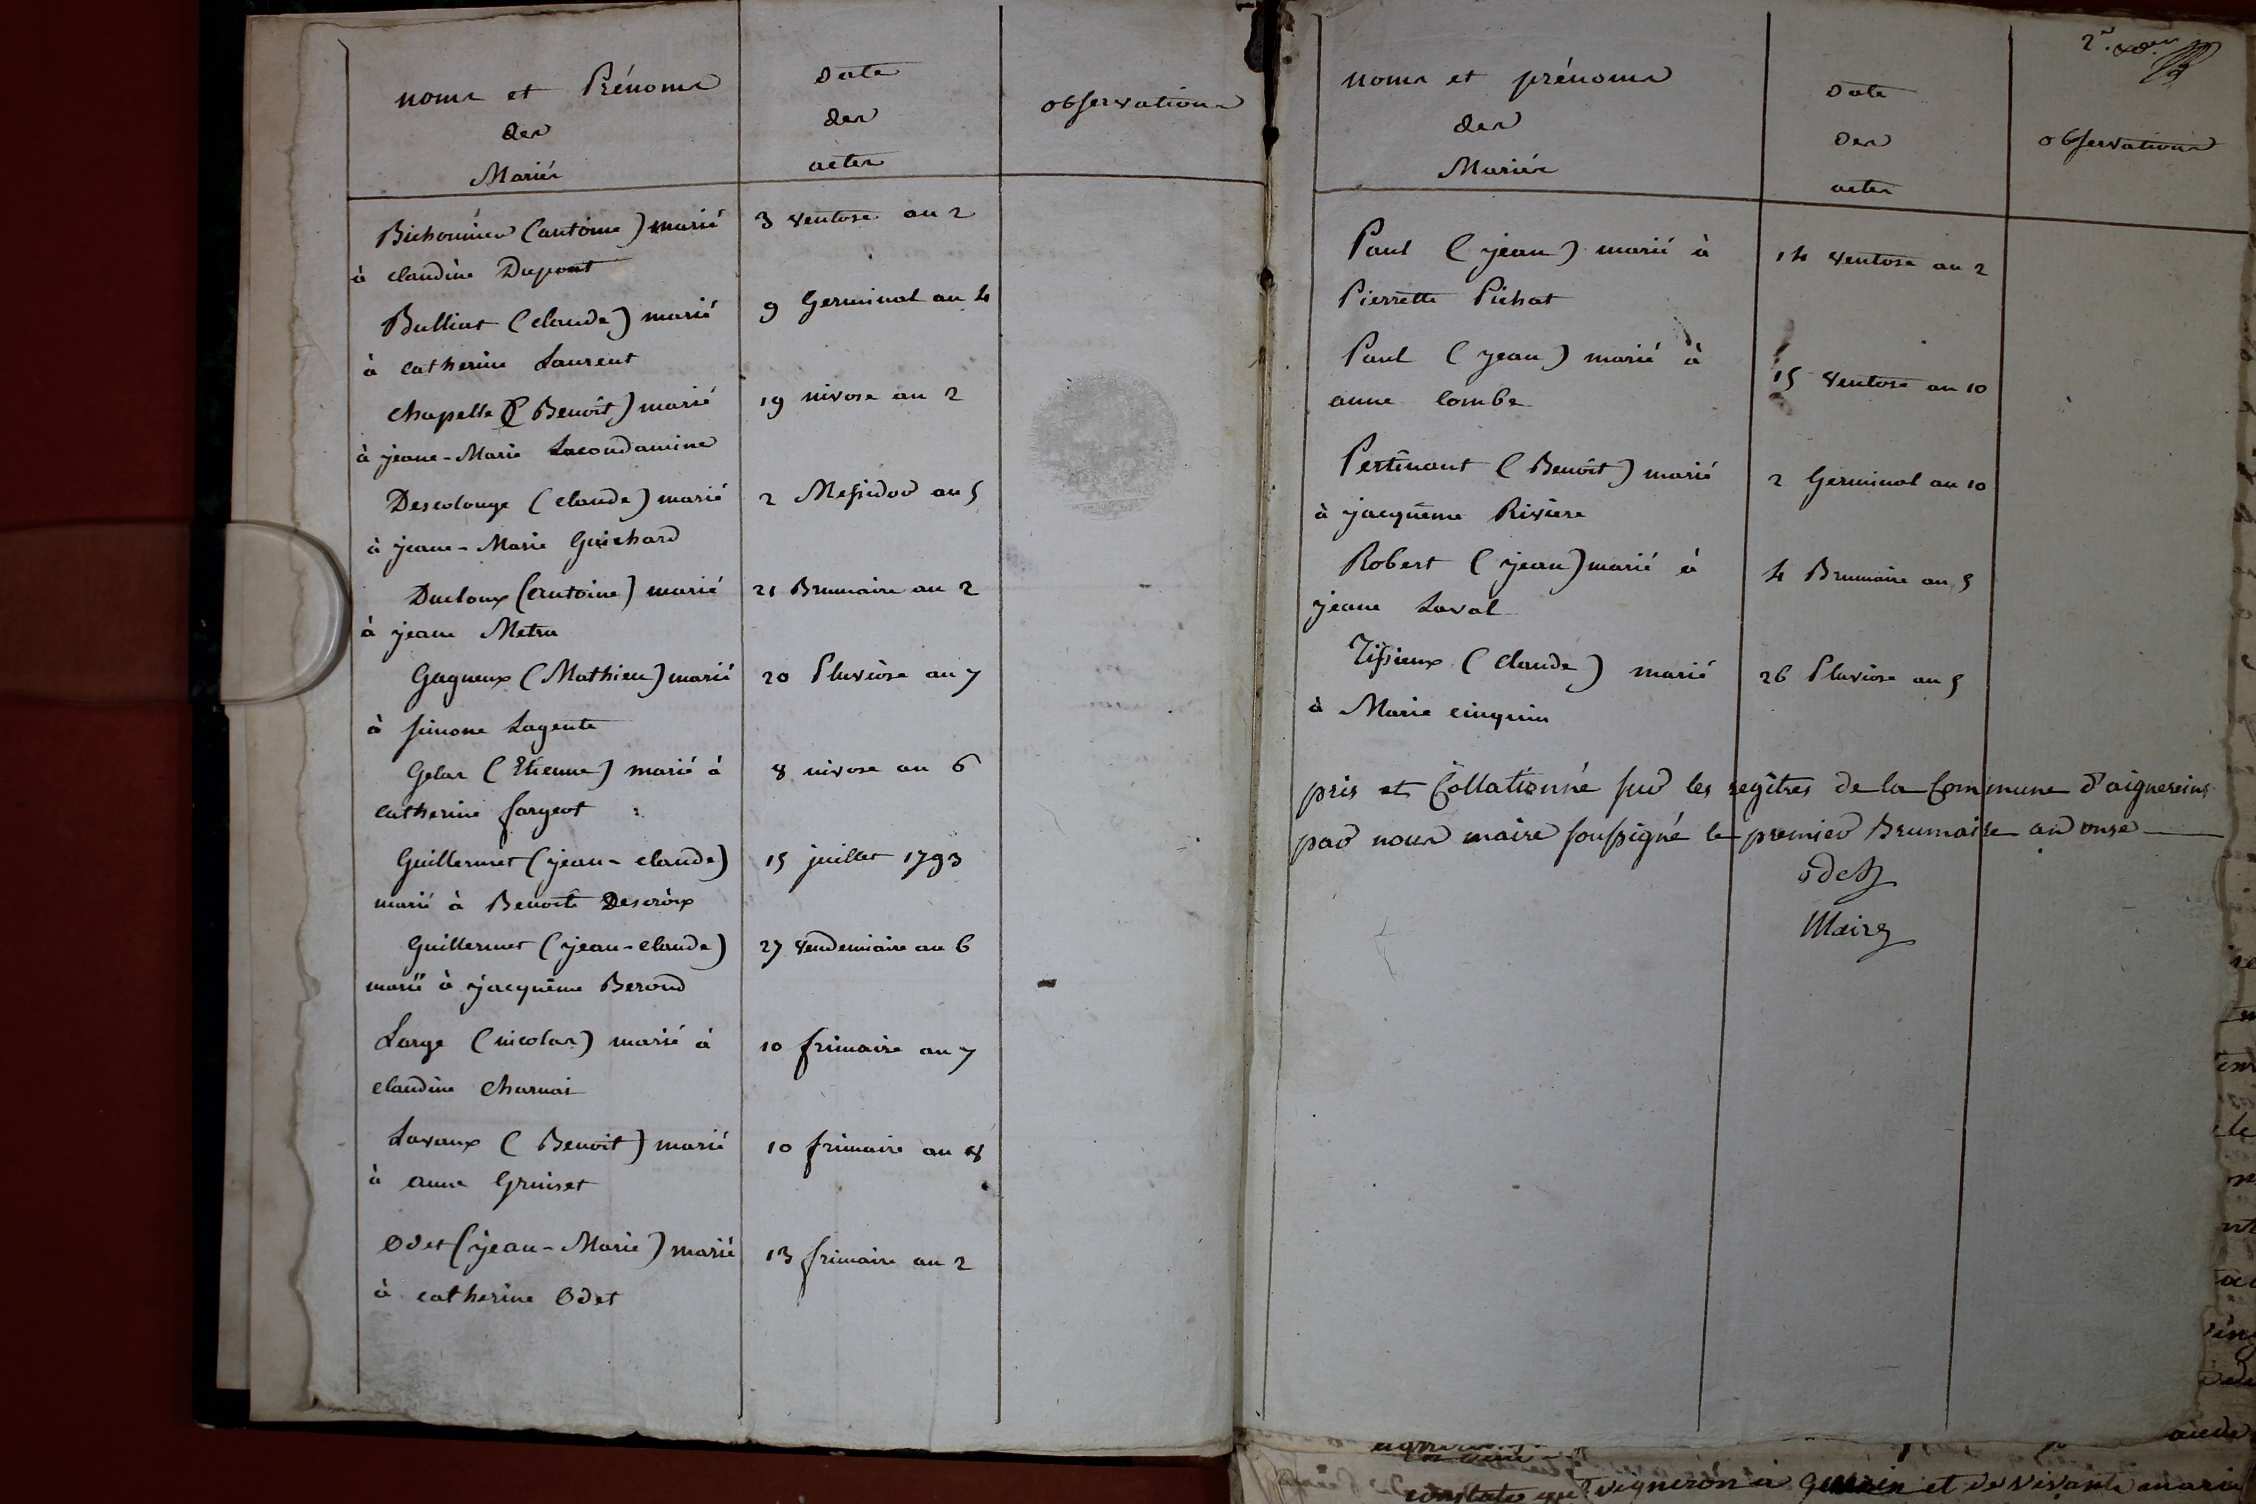 noms et Prénoms
des
Mariés
Date
des
actes
observations
Bichonnier (antoine) marié
à claudine Dupont
3 ventose an 2
Bulliat (claude) marié
à catherine Laurent
9 Germinal an 4
chapelle (Benoît) marié
à jeane-Marie Lacondamine
19 nivose an 2
Descolonge (claude) marié
à jeane-Marie Guichard
2 Messidor an 5
Ducloux (antoine) marié
à jeane Metra
21 Brumaire an 2
Gagneux (Mathieu) marié
à simone Lagente
20 Pluviôse an 7
Gelas (Etienne) marié à
catherine fargeot
8 nivose an 6
Guillermet (jean-claude)
marié à Benoite Descroix
15 juillet 1793
Guillermet (jean-claude)
marié à jacquême Berond
27 vendemiaire an 6
Large (nicolas) marié à
claudine Charnai
10 frimaire an 7
Lavaux (Benoit) marié
à anne Gruiset
10 frimaire an 8
Odet (jean-Marie) marié
à catherine Odet
13 frimaire an 2
noms et prénoms
des
Mariés
Date
des
actes
observations
Paul (jean) marié à
Pierrette Pichat
14 ventose an 2
Paul (jean) marié à
anne Combe
15 ventose an 10
Pertinant (Benoît) marié
à jacquême Riviere
2 Germinal an 10
Robert (jean) marié à
jeane Laval
4 Brumaire an 5
Tissieux (Claude) marié
à Marie cinquin
26 Pluviose an 5
pris et Collationné sur les regîtres de la Commune d'aignereins
par nous maire soussigné le premier Brumaire an onse
odet
Maire
vigneron à et de vivante marie